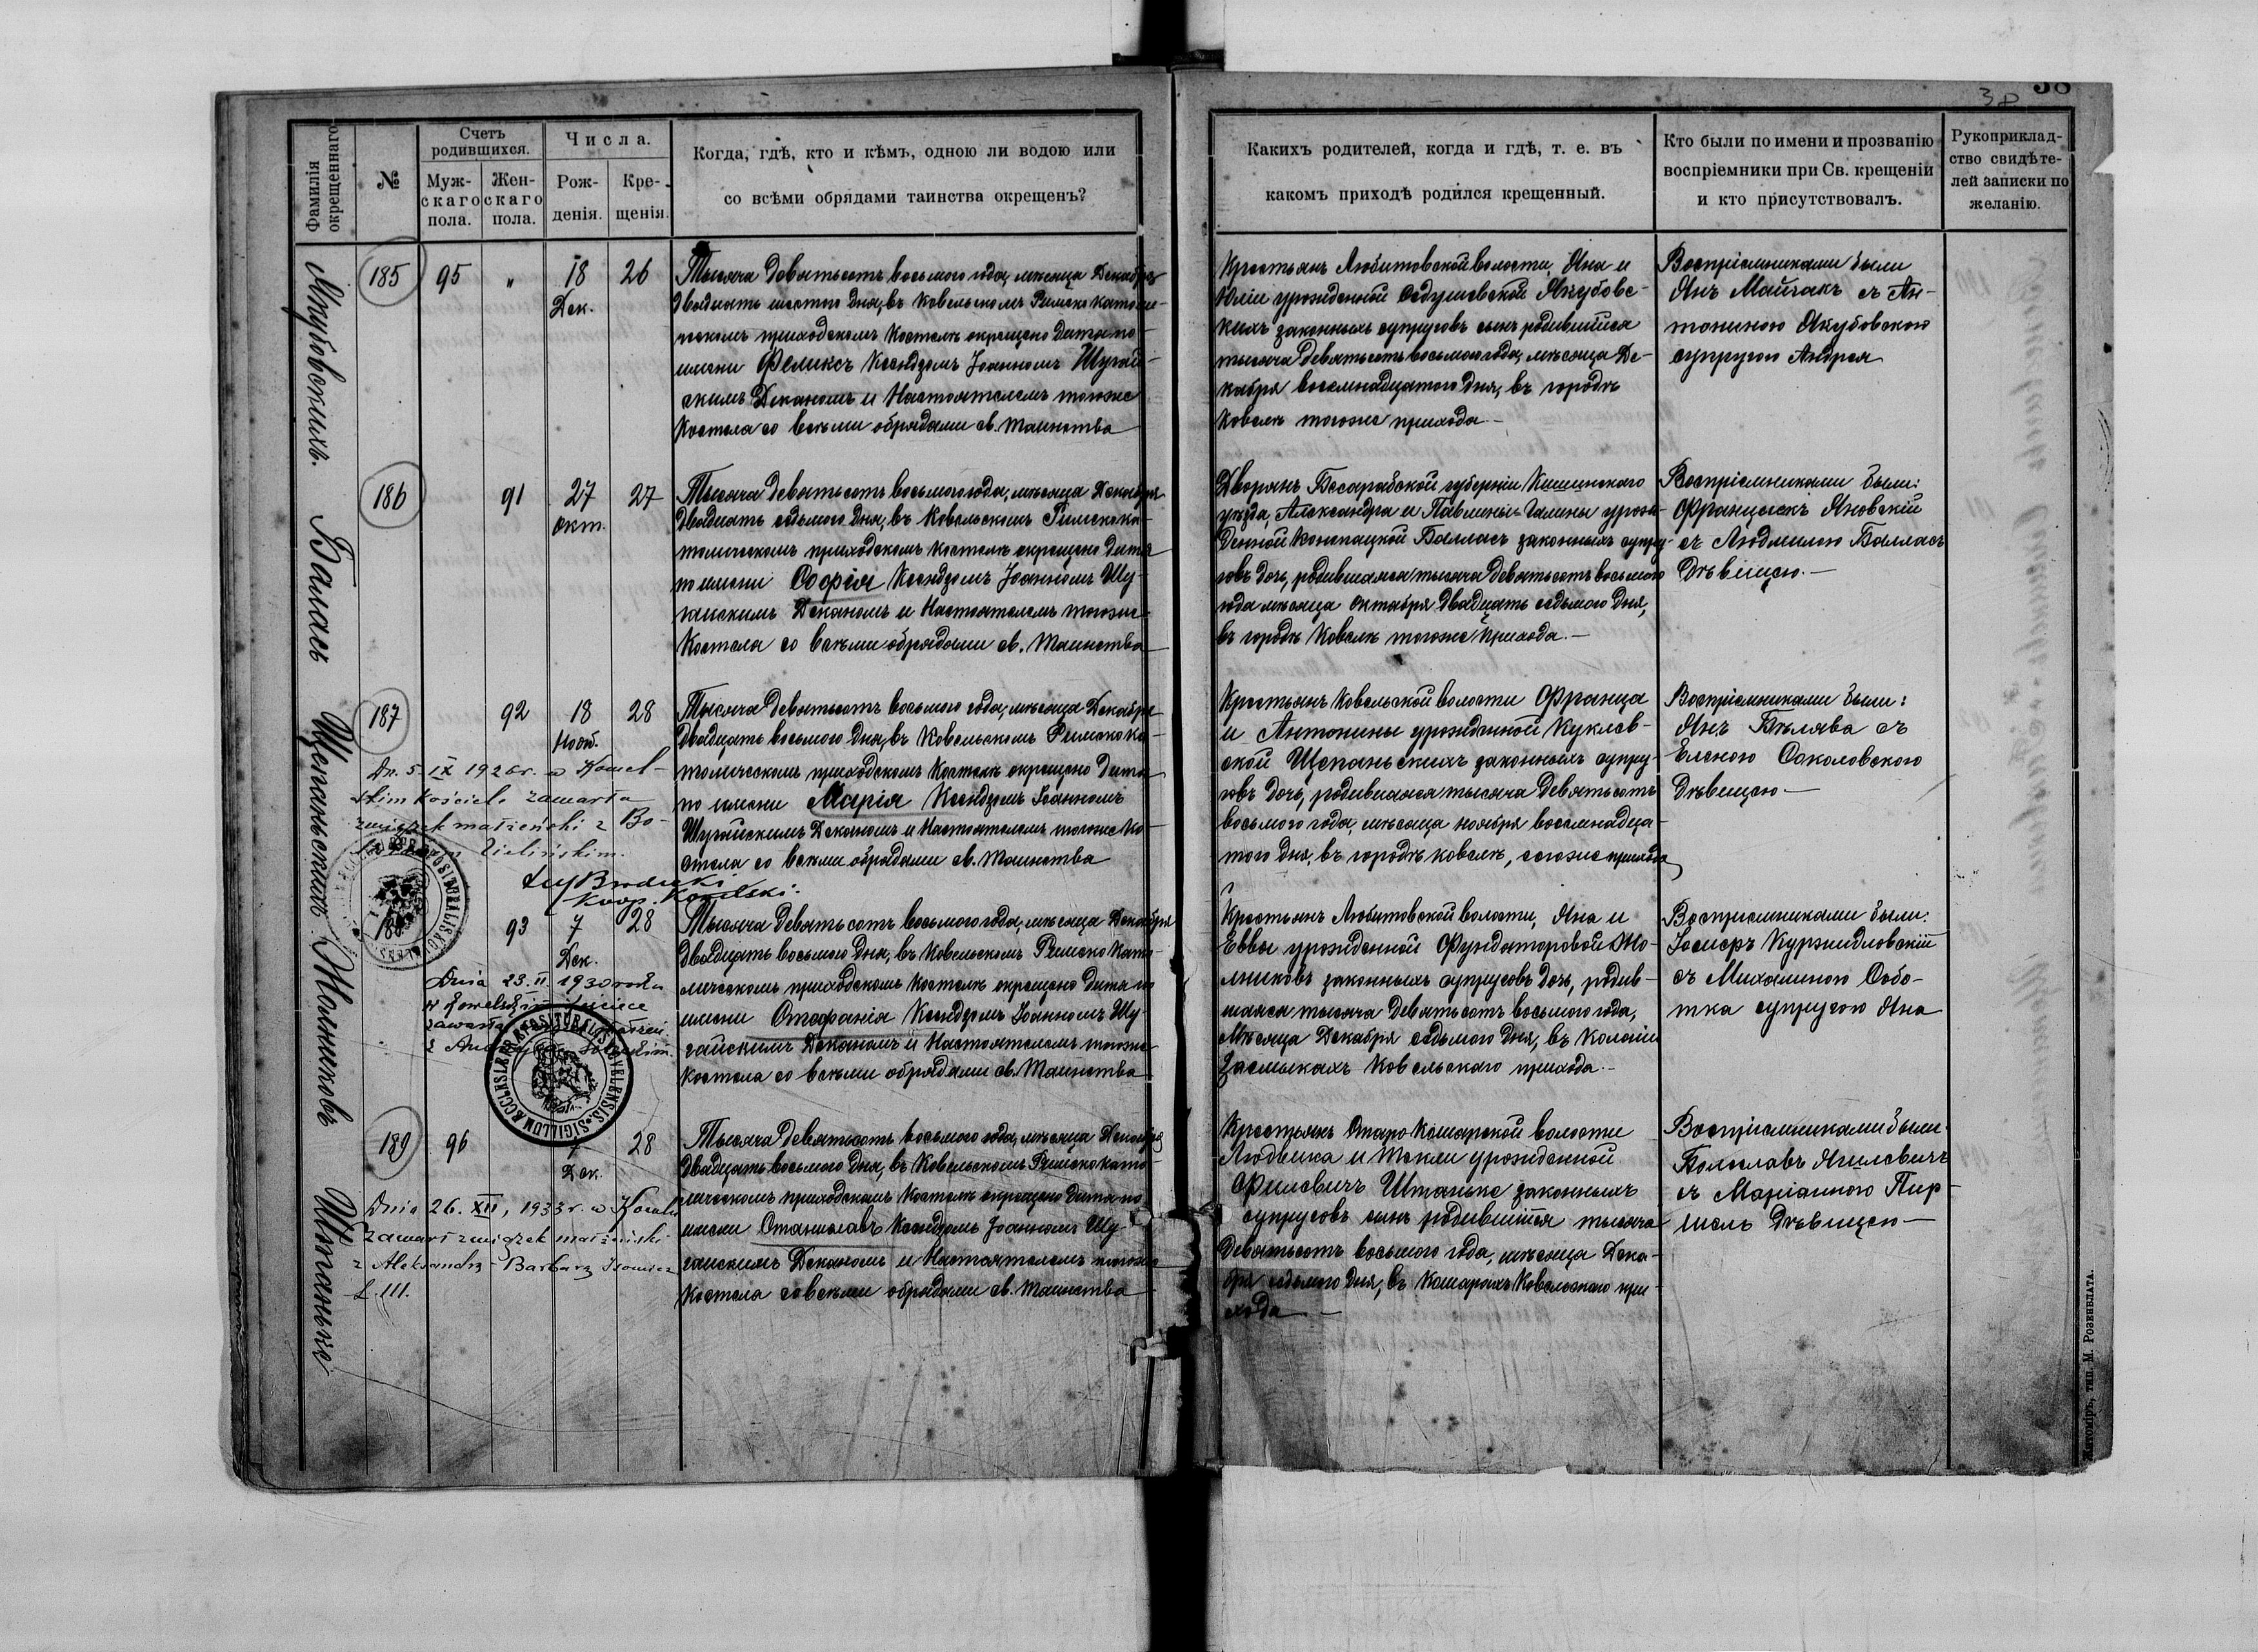 38
38
Фамилія окрещеннаго
№
Счетъ родившихся.
Муж-
скаго
пола.
Жен-
скаго
пола.
Числа.
Рож-
денія.
Кре-
щенія.
Когда, гдѣ, кто и кѣмъ, одною ли водою или
со всѣми обрядами таинства окрещенъ?
Какихъ родителей, когда и гдѣ, т. е. въ
какомъ приходѣ родился крещенный.
Кто были по имени и прозванію
воспріемники при Св. крещеніи
и кто присутствовалъ.
Рукоприклад-
ство свидѣте-
лей записки по
желанію.
Якубовскихъ.
185 95 „ 18 26
Дек.
Тысяча девятьсотъ восьмого года, мѣсяца Декабря
двадцать шестого дня, въ Ковельскомъ Римско католи-
ческомъ приходскомъ костелѣ окрещено дитя по
имени Феликсъ Ксендзомъ Іоанномъ Шугай-
скимъ Деканомъ и Настоятелемъ тогоже
Костела со всѣми обрядами св. таинства
Крестьянъ Любитовской волости, Яна и
Юліи урожденной Седушевской Якубовс-
кихъ законныхъ супруговъ сынъ родившійся
тысяча девятьсотъ восьмого года, мѣсяца Де-
кабря восемнадцатого дня, въ городѣ
Ковелѣ тогоже прихода.
Воспріемниками были
Янъ Майчакъ съ Ан-
тониною Якубовскою
супругою Андрея
Балласъ
186 91 27 27
окт.
Тысяча девятьсотъ восьмого года, мѣсяца Декабря
двадцать седьмого дня, въ Ковельскомъ Римско ка-
толическомъ приходскомъ костелѣ окрещено дитя
по имени Софія Ксендзомъ Іоанномъ Шу-
гайскимъ Деканомъ и Настоятелемъ тогоже
Костела со всѣми обрядами св. таинства
Дворянъ Бесарабской губерніи Кишинскаго
уѣзда, Александра и Павлины Галины урож-
денной Конопацкой Балласъ законныхъ супру-
говъ дочь, родившаяся тысяча девятьсотъ восьмого
года мѣсяца октября двадцать седьмого дня,
въ городѣ Ковелѣ тогоже прихода.
Воспріемниками были:
Францискъ Яновскій
съ Людмилою Балласъ
Дѣвицею.
Щепаньскихъ
187 92 18 28
Нояб.
Тысяча девятьсотъ восьмого года, мѣсяца Декабря
двадцать восьмого дня, въ Ковельскомъ Римско ка-
толическомъ приходскомъ костелѣ окрещено дитя
по имени Марія Ксендзомъ Іоанномъ
Шугайскимъ Деканомъ и Настоятелемъ тогоже ко-
стела со всѣми обрядами св. таинства
Dn. 5 IX 1926 r. w Kowel-
skim kościele zawarła
związek małżeński z Bo-
Zielińskim.
Крестьянъ Ковельской волости Франца
и Антонины урожденной Куклев-
ской Щепаньскихъ законныхъ супру-
говъ дочь, родившаяся тысяча девятьсотъ
восьмого года, мѣсяца ноября восемнадца-
того дня, въ городѣ Ковелѣ, тогоже прихода
Воспріемниками были:
Янъ Бѣлява съ
Еленою Соколовскою
Дѣвицею
Жолниковъ
188 93 7 28
Дек.
Тысяча девятьсотъ восьмого года, мѣсяца Декабря
двадцать восьмого дня, въ Ковельскомъ Римско като-
лическомъ приходскомъ костелѣ окрещено дитя по
имени Стефанія Ксендзомъ Іоанномъ Шу-
гайскимъ Деканомъ и Настоятелемъ тогоже
Костела со всѣми обрядами св. таинства
Dnia 23. II 1930 roku
zawarła
SIGILLUM ECCLESIAE PRAEPOSITURALIS KOVELENSIS
Крестьянъ Любитовской волости, Яна и
Еввы урожденной Фундаторовой Жо-
лниковъ законныхъ супруговъ дочь, родив-
шаяся тысяча девятьсотъ восьмого года,
мѣсяца Декабря седьмого дня, въ колоніи
Засмыкахъ Ковельскаго прихода.
Воспріемниками были:
Іосифъ Куржидловскій
съ Михалиною Собо-
тка супругою Яна
Штаньке
189 96 7 28
Дек.
Тысяча девятьсотъ восьмого года, мѣсяца Декабря
двадцать восьмого дня, въ Ковельскомъ Римско като-
лическомъ приходскомъ костелѣ окрещено дитя по
имени Станиславъ Ксендзомъ Іоанномъ Шу-
гайскимъ Деканомъ и Настоятелемъ тогоже
Костела со всѣми обрядами св. таинства
Dnia 26. XII, 1933 r. w Kowlu
zawarł związek małżeński
z Aleksandrą - Barbarą
L. 111.
Крестьянъ Старо Кошарской волости
Людвика и Текли урожденной
Филевичъ Штаньке законныхъ
супруговъ сынъ родившійся тысяча
девятьсотъ восьмого года, мѣсяца Дека-
бря седьмого дня, въ Кошарахъ Ковельскаго при-
хода
Воспріемниками были
Болеславъ Ягилевичъ
съ Маріанною Пир-
шель Дѣвицею
Житоміръ, тип. М. Розенблата.